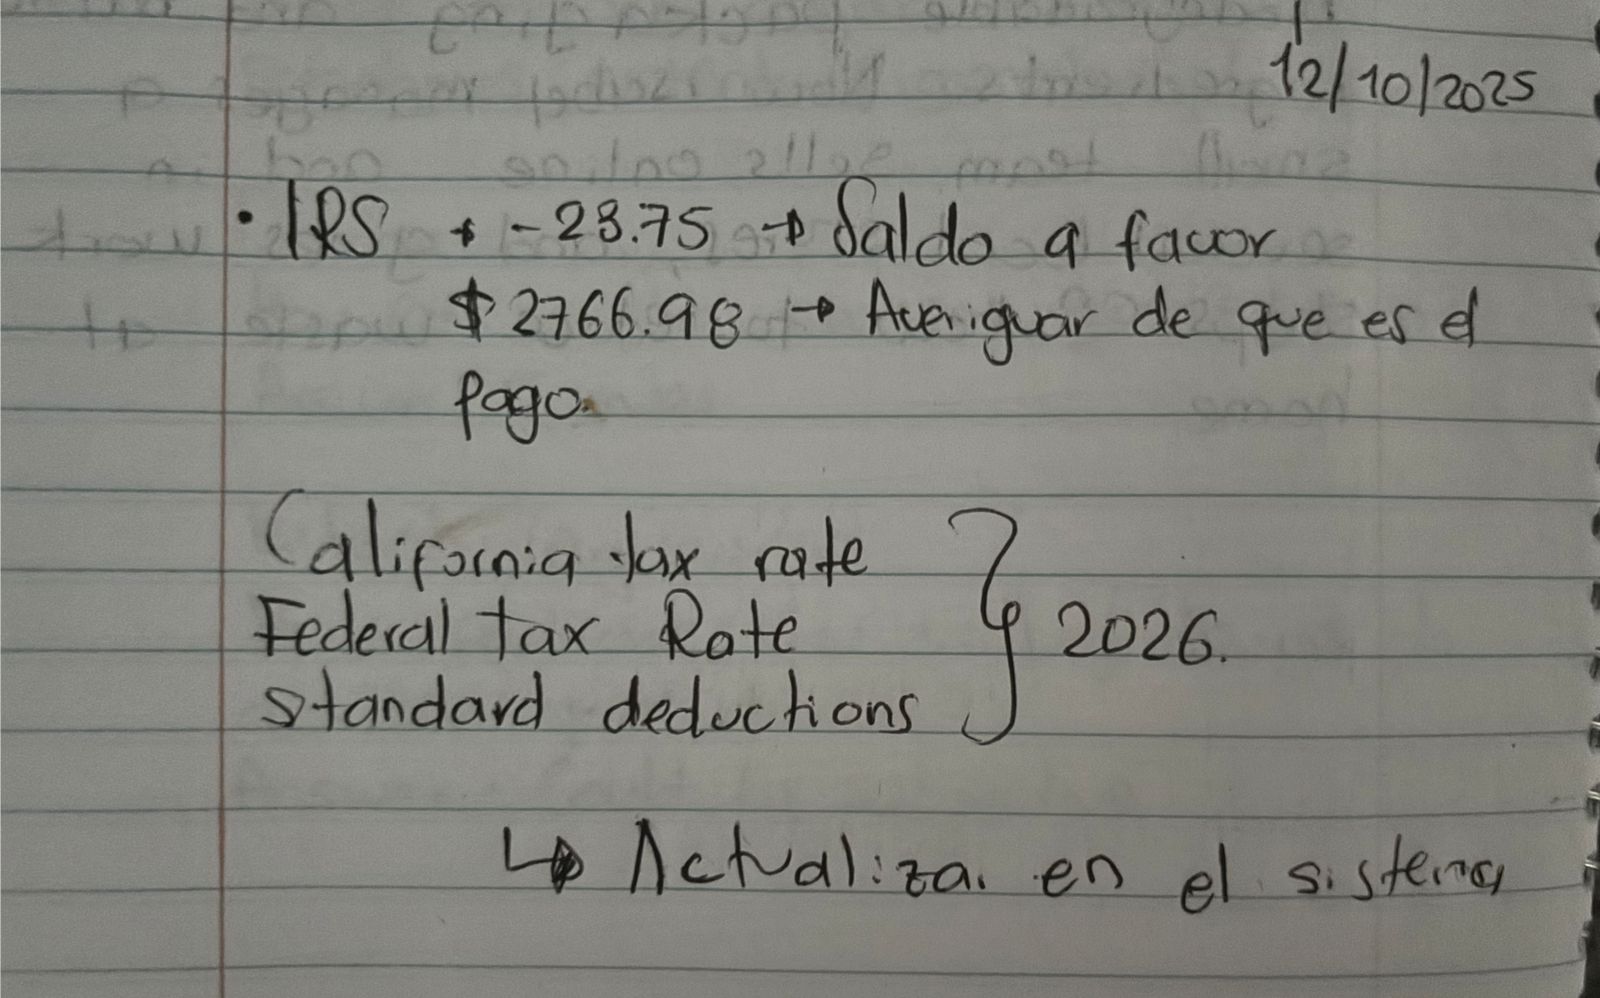 12/10/2025
• IRS → -23.75 → Saldo a favor
$2766.98 → Averiguar de que es el
pago.
California tax rate
Federal tax Rate } 2026.
standard deductions
↳ Actualizar en el sistema